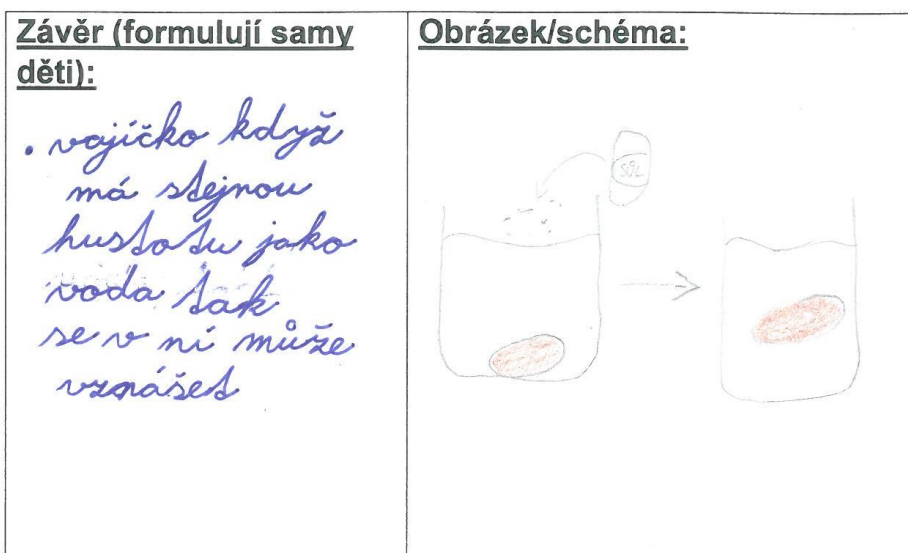 Závěr (formulují samy
děti):
• vajíčko když
má stejnou
hustotu jako
voda tak
se v ní může
vznášet
Obrázek/schéma:
SŮL